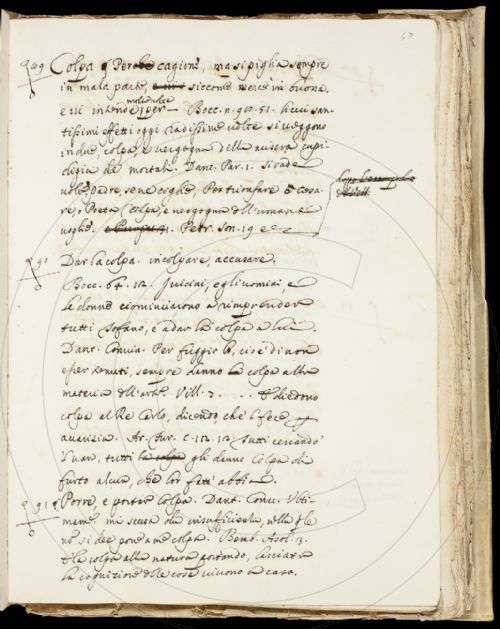 67
Colpa p Per cagione, ma si piglia sempre
in mala parte, siccome mercè in buona,
e vi intende per Bocc. n. 98. 51. li cui san-
tissimi effetti oggi radissime volte si veggono
in due, colpa, e vergogna della misera cupi-
digia de' mortali. Dant. Par. 1. Sì rade
volte, Padre, se ne coglie, Per trionfare o Cesa-
re, o Poeta Colpa, e vergogna dell'umane
voglie. Petr. Son. 19
Dar la colpa. incolpare, accusare.
Bocc. 64. 12. I vicini, e gli uomini, e
le donne cominciarono a riprender
tutti Tofano, e a dar la colpa a lui.
Dant. Convin. Per fuggir lo, cioè di non
esser tenuti, sempre danno colpa alla
materia dell'arte. Vill. 7. ... E diedono
colpa al Re Carlo, dicendo, che 'l fece p
avarizia. Ar. Fur. c. 12. 12. Tutti cercando
il van, tutti gli danno Colpa di
furto alcun, che lor fatt' abbia.
Porre, e portar colpa. Dant. Conv. Ulti-
mamente mi scusa insufficienza, nella
no si dee pondare colpa. Bemb. Asol. 3.
E la colpa alla natura portando, lasciata
la cognizione delle cose vivono a caso.